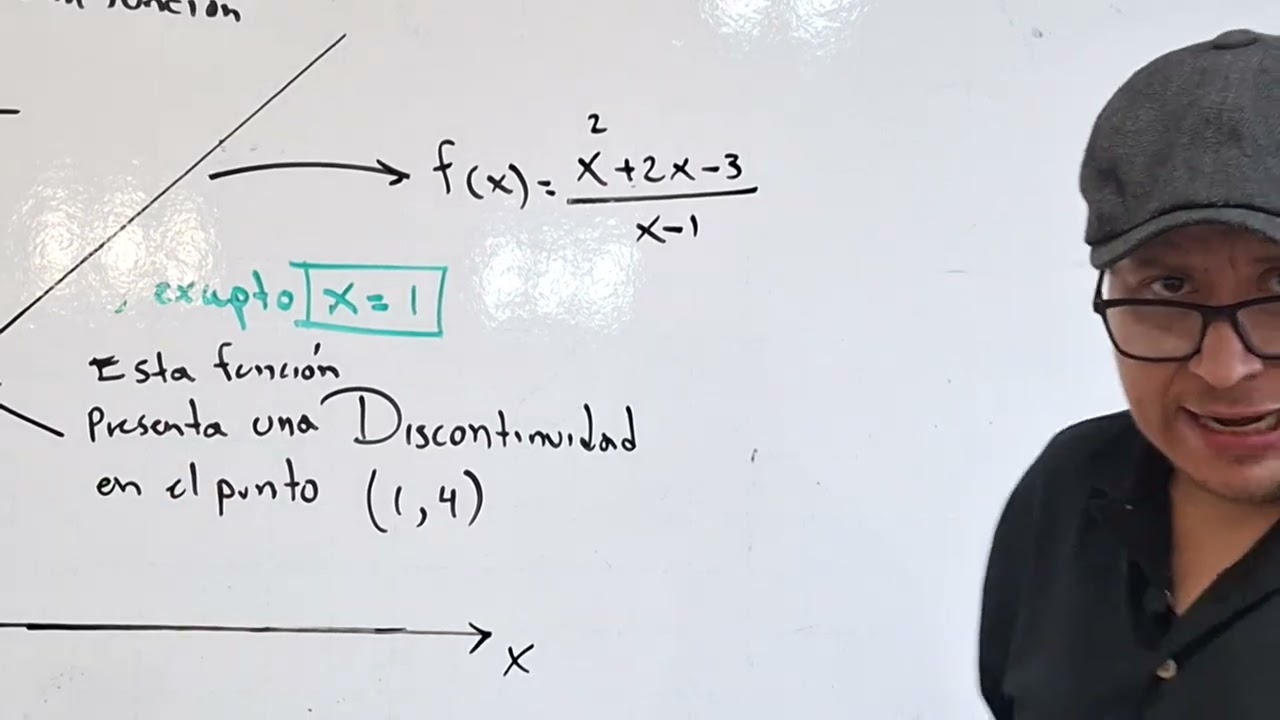 función
f(x) = x²+2x-3 / x-1
exupto x = 1
Esta función
Presenta una Discontinuidad
en el punto (1, 4)
x